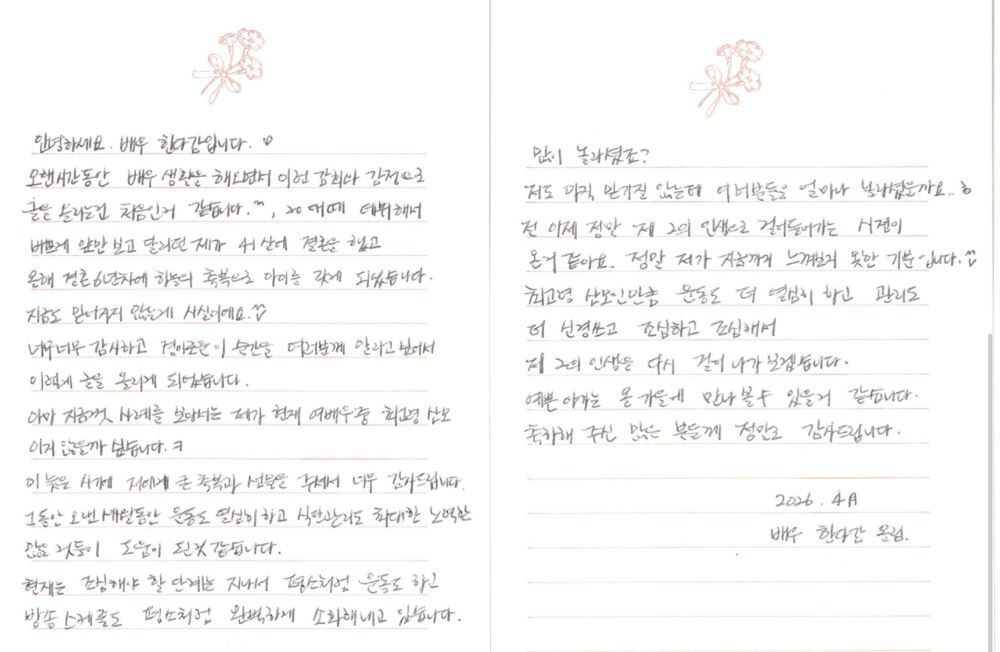 안녕하세요. 배우 한다감입니다. ♡
오랜시간동안 배우 생활을 해오면서 이런 감회와 감정으로
글을 올리는건 처음인거 같습니다.^^, 20대때 데뷔해서
바쁘게 앞만 보고 달리던 제가 41살에 결혼을 했고
올해 결혼 6년차에 하늘의 축복으로 아이를 갖게 되었습니다.
지금도 믿어지지 않는데 사실이에요.
너무너무 감사하고 경이로운 이 순간을 여러분께 알리고 싶어서
이렇게 글을 올리게 되었습니다.
아마 지금껏 사례를 보아서는 제가 현재 여배우중 최고령 산모
이지 않을까 싶습니다.ㅋ
이 늦은 시기에 저에게 큰 축복과 선물을 주셔서 너무 감사드립니다.
그동안 오랜 세월동안 운동도 열심히 하고 식단관리도 최대한 노력한
많은 것들이 도움이 된것 같습니다.
현재는 조심해야 할 단계는 지나서 평소처럼 운동도 하고
방송 스케줄도 평소처럼 완벽하게 소화해내고 있습니다.
많이 놀라셨죠?
저도 아직 믿기질 않는데 여러분들은 얼마나 놀라셨을까요..
전 이제 정말 제 2의 인생으로 걸어들어가는 시점이
온거 같아요. 정말 제가 지금까지 느껴보지 못한 기분입니다.
최고령 산모인만큼 운동도 더 열심히 하고 관리도
더 신경쓰고 조심하고 조심해서
제 2의 인생을 다시 걸어 나가 보겠습니다.
예쁜 아가는 올 가을에 만나볼수 있을거 같습니다.
축하해 주신 많은 분들께 정말로 감사드립니다.
2026. 4月
배우 한다감 올림.